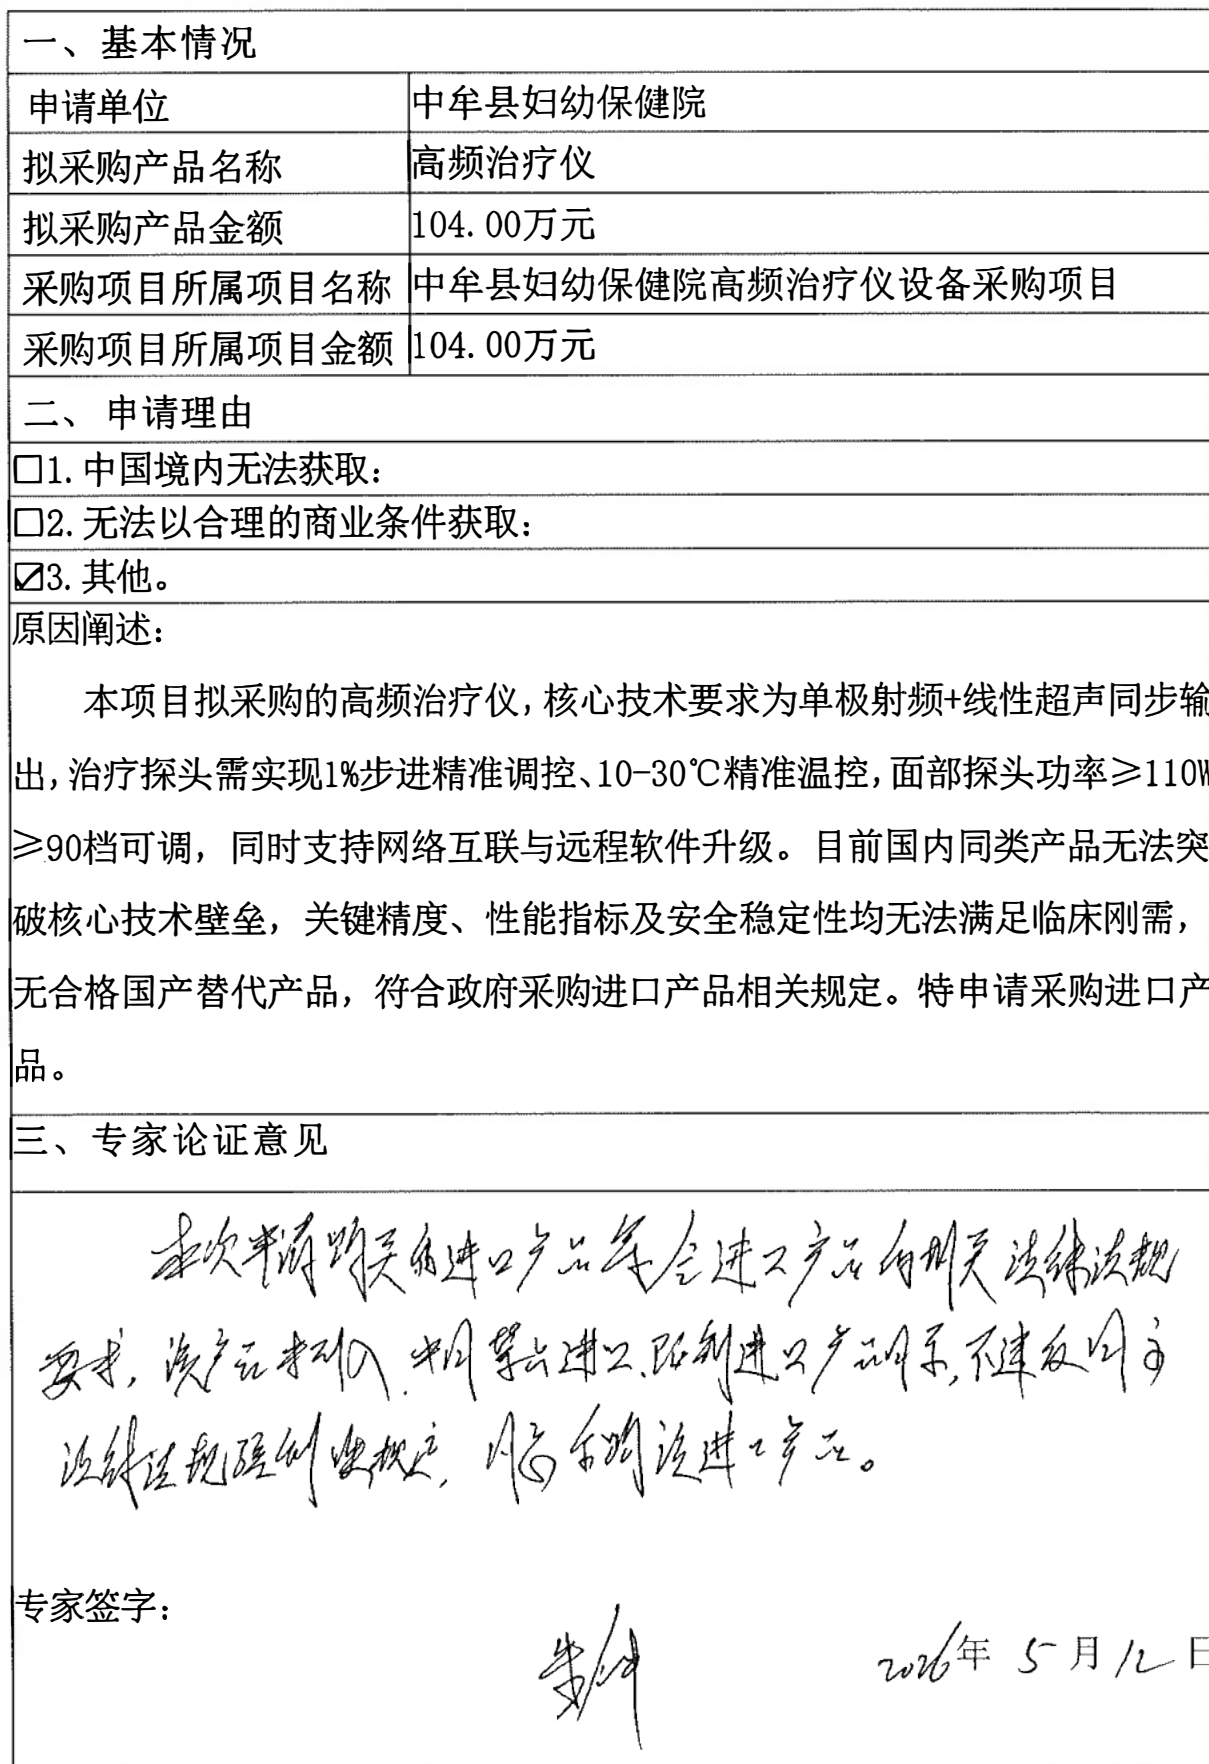 一、基本情况
申请单位 中牟县妇幼保健院
拟采购产品名称 高频治疗仪
拟采购产品金额 104.00万元
采购项目所属项目名称 中牟县妇幼保健院高频治疗仪设备采购项目
采购项目所属项目金额 104.00万元
二、申请理由
□1.中国境内无法获取：
□2.无法以合理的商业条件获取：
☑3.其他。
原因阐述：
本项目拟采购的高频治疗仪,核心技术要求为单极射频+线性超声同步输
出,治疗探头需实现1%步进精准调控、10-30℃精准温控,面部探头功率≥110W
≥90档可调，同时支持网络互联与远程软件升级。目前国内同类产品无法突
破核心技术壁垒，关键精度、性能指标及安全稳定性均无法满足临床刚需，
无合格国产替代产品，符合政府采购进口产品相关规定。特申请采购进口产
品。
三、专家论证意见
本次申请购买的进口产品符合进口产品的相关法律法规
要求，该产品未列入中国禁止进口、限制进口产品目录，不违反国家
法律法规强制性规定，同意采购该进口产品。
专家签字：
2026年 5月12日